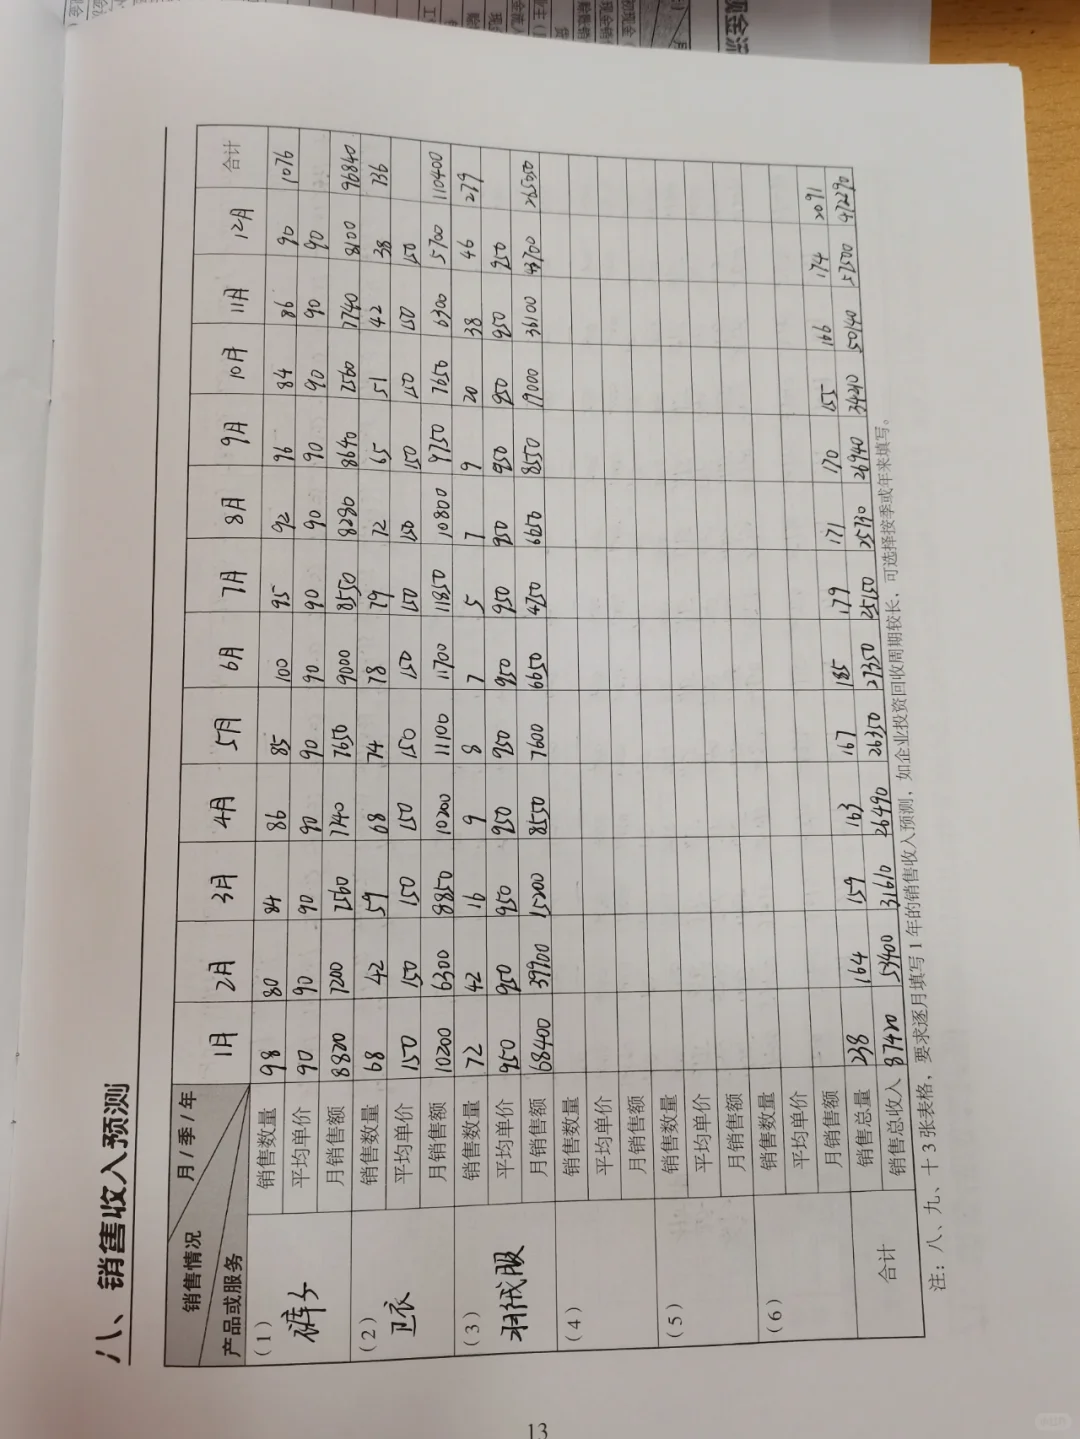 八、销售收入预测
销售情况 月/季/年 1月 2月 3月 4月 5月 6月 7月 8月 9月 10月 11月 12月 合计
产品或服务
(1) 销售数量 98 80 84 86 85 100 95 92 96 84 86 90 1076
裤子 平均单价 90 90 90 90 90 90 90 90 90 90 90 90
月销售额 8820 7200 7560 7740 7650 9000 8550 8280 8640 7560 7740 8100 96840
(2) 销售数量 68 42 59 68 74 78 79 72 65 51 42 38 736
卫衣 平均单价 150 150 150 150 150 150 150 150 150 150 150 150
月销售额 10200 6300 8850 10200 11100 11700 11850 10800 9750 7650 6300 5700 110400
(3) 销售数量 72 42 16 9 8 7 5 7 9 20 38 46 279
羽绒服 平均单价 950 950 950 950 950 950 950 950 950 950 950 950
月销售额 68400 39900 15200 8550 7600 6650 4750 6650 8550 19000 36100 43700 265050
(4) 销售数量
平均单价
月销售额
(5) 销售数量
平均单价
月销售额
(6) 销售数量
平均单价
月销售额
合计 销售总量 238 164 159 163 167 185 179 171 170 155 166 174 2091
销售总收入 87420 53400 31610 26490 26350 27350 25150 25730 26940 34210 50140 57500 472290
注：八、九、十3张表格，要求逐月填写1年的销售收入预测，如企业投资回收周期较长，可选择按季或年来填写。
13
现金流